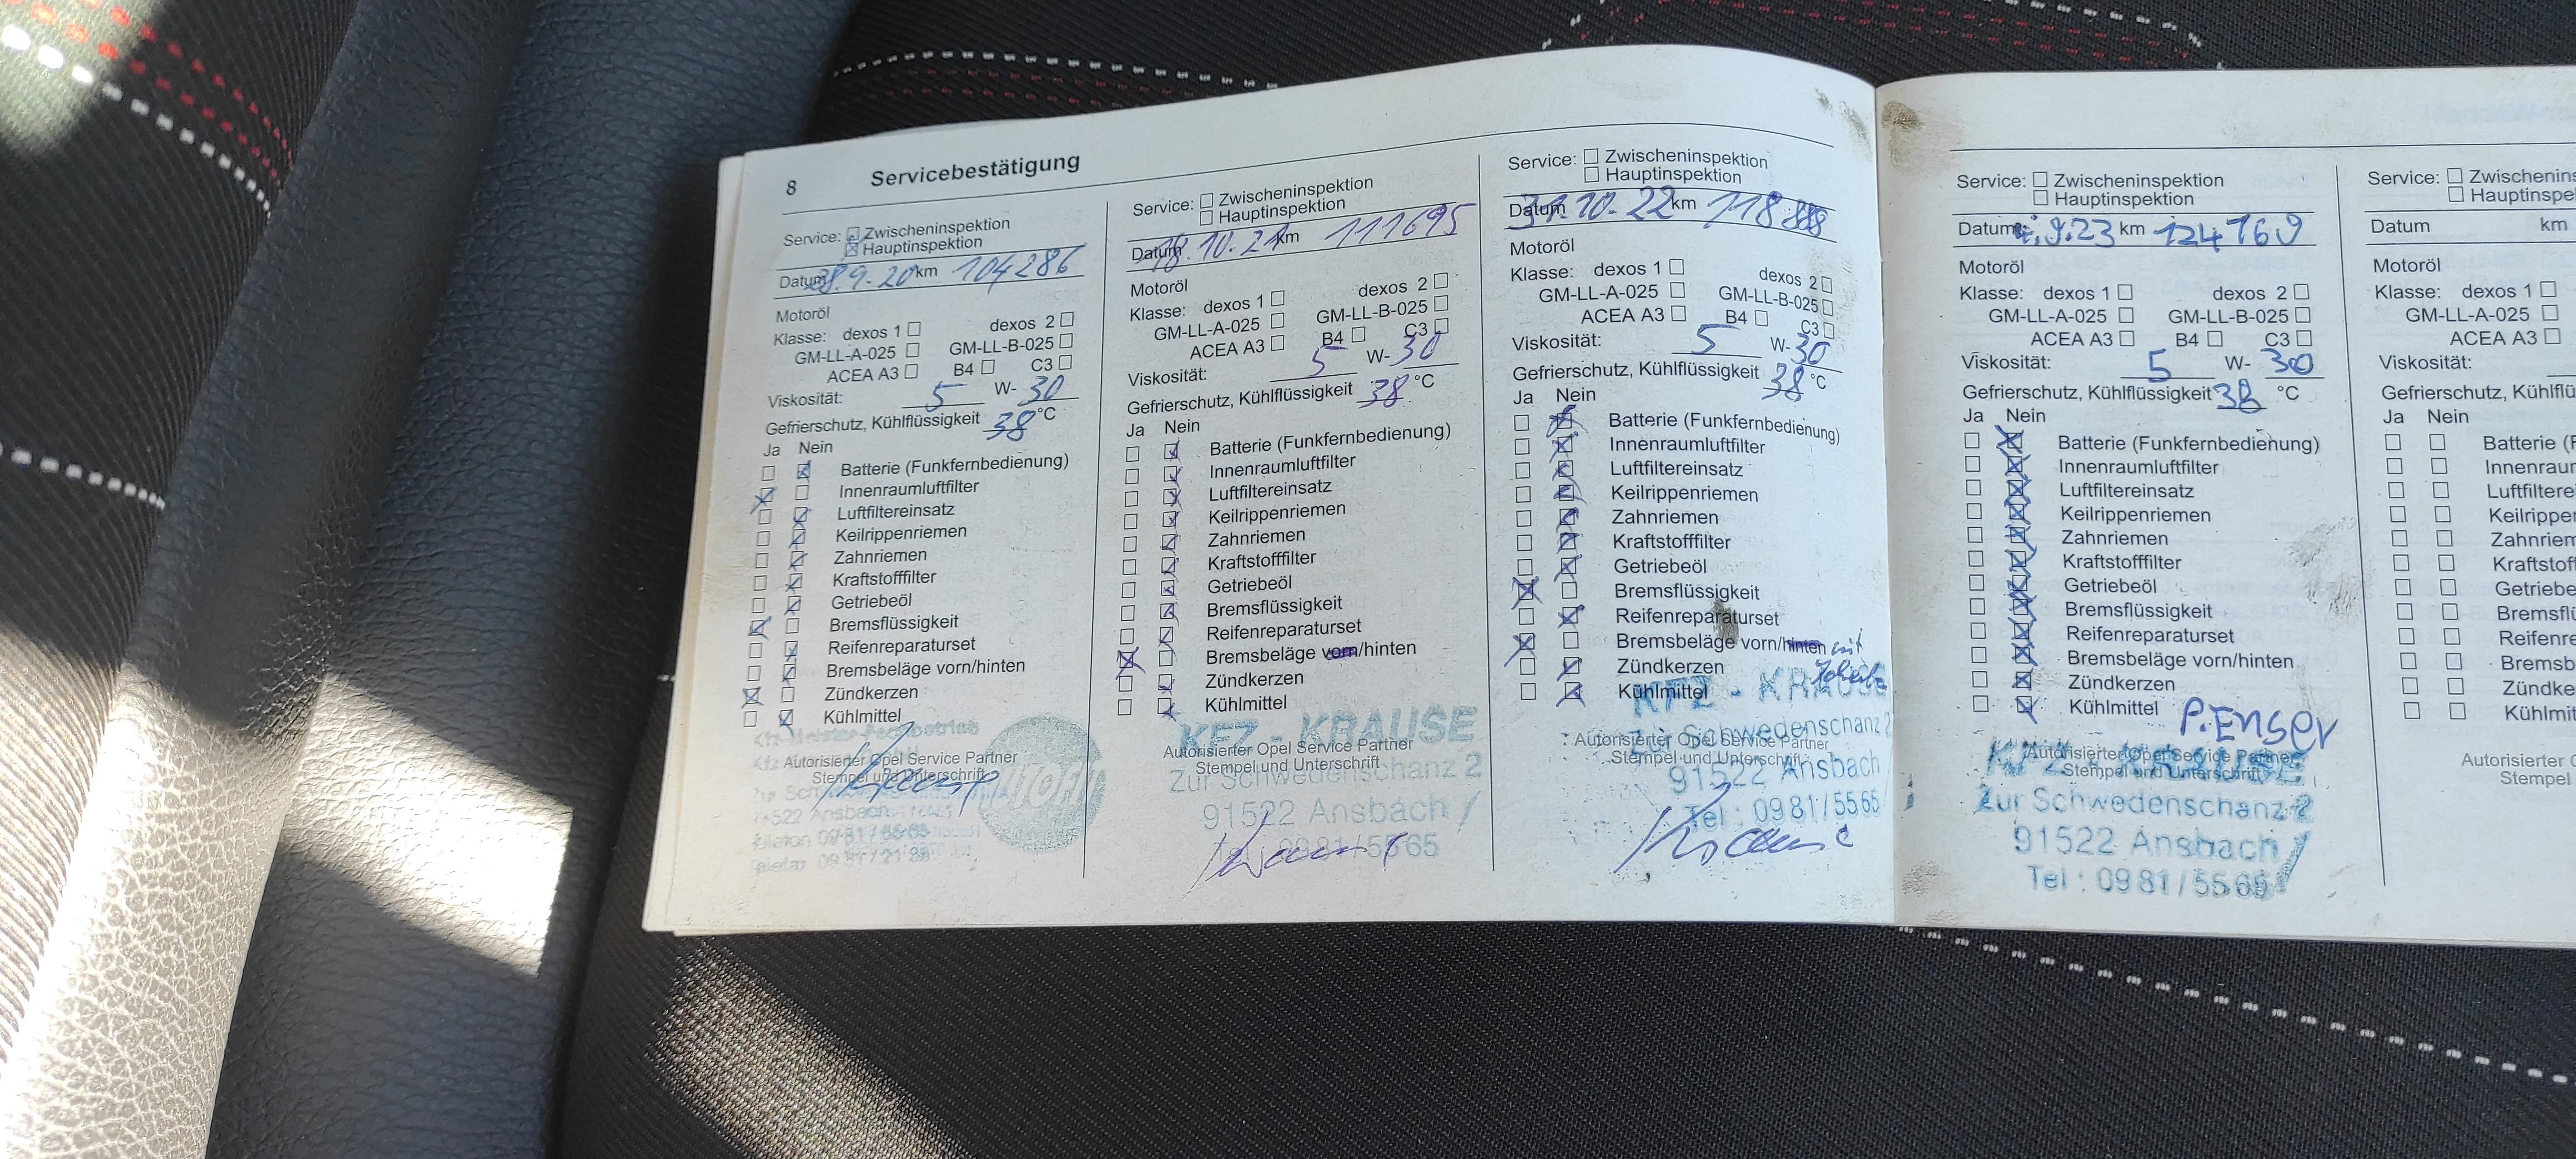 8 Servicebestätigung
Service: Zwischeninspektion
Hauptinspektion
Datum 28.9.20 km 104286
Motoröl
Klasse: dexos 1 dexos 2
GM-LL-A-025 GM-LL-B-025
ACEA A3 B4 C3
Viskosität: 5 W- 30
Gefrierschutz, Kühlflüssigkeit 38 °C
Ja Nein
Batterie (Funkfernbedienung)
Innenraumluftfilter
Luftfiltereinsatz
Keilrippenriemen
Zahnriemen
Kraftstofffilter
Getriebeöl
Bremsflüssigkeit
Reifenreparaturset
Bremsbeläge vorn/hinten
Zündkerzen
Kühlmittel
Autorisierter Opel Service Partner
Stempel und Unterschrift
Service: Zwischeninspektion
Hauptinspektion
Datum 18.10.21 km 111695
Motoröl
Klasse: dexos 1 dexos 2
GM-LL-A-025 GM-LL-B-025
ACEA A3 B4 C3
Viskosität: 5 W- 30
Gefrierschutz, Kühlflüssigkeit 38 °C
Ja Nein
Batterie (Funkfernbedienung)
Innenraumluftfilter
Luftfiltereinsatz
Keilrippenriemen
Zahnriemen
Kraftstofffilter
Getriebeöl
Bremsflüssigkeit
Reifenreparaturset
Bremsbeläge vorn/hinten
Zündkerzen
Kühlmittel
KFZ - KRAUSE
Autorisierter Opel Service Partner
Stempel und Unterschrift
Zur Schwedenschanz 2
91522 Ansbach
Tel : 0981/5565
Service: Zwischeninspektion
Hauptinspektion
Datum 31.10.22 km
Motoröl
Klasse: dexos 1 dexos 2
GM-LL-A-025 GM-LL-B-025
ACEA A3 B4 C3
Viskosität: 5 W- 30
Gefrierschutz, Kühlflüssigkeit 38 °C
Ja Nein
Batterie (Funkfernbedienung)
Innenraumluftfilter
Luftfiltereinsatz
Keilrippenriemen
Zahnriemen
Kraftstofffilter
Getriebeöl
Bremsflüssigkeit
Reifenreparaturset
Bremsbeläge vorn/hinten mit
Zündkerzen
Kühlmittel
KFZ - KRAUSE
Zur Schwedenschanz 2
Autorisierter Opel Service Partner
Stempel und Unterschrift
91522 Ansbach
Tel : 0981/5565
Krause
Service: Zwischeninspektion
Hauptinspektion
Datum 9.23 km 124769
Motoröl
Klasse: dexos 1 dexos 2
GM-LL-A-025 GM-LL-B-025
ACEA A3 B4 C3
Viskosität: 5 W- 30
Gefrierschutz, Kühlflüssigkeit 38 °C
Ja Nein
Batterie (Funkfernbedienung)
Innenraumluftfilter
Luftfiltereinsatz
Keilrippenriemen
Zahnriemen
Kraftstofffilter
Getriebeöl
Bremsflüssigkeit
Reifenreparaturset
Bremsbeläge vorn/hinten
Zündkerzen
Kühlmittel
P.Enser
Autorisierter Opel Service Partner
Stempel und Unterschrift
KFZ - KRAUSE
Zur Schwedenschanz 2
91522 Ansbach
Tel : 0981/5565
Service: Zwischeninspe
Hauptinspe
Datum km
Motoröl
Klasse: dexos 1
GM-LL-A-025
ACEA A3
Viskosität:
Gefrierschutz, Kühlflü
Ja Nein
Batterie (F
Innenraum
Luftfiltere
Keilripper
Zahnriem
Kraftstof
Getriebe
Bremsfl
Reifenre
Bremsb
Zündke
Kühlmit
Autorisierter
Stempel